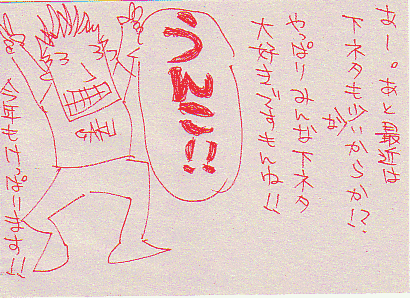 あー。あと最近は
下ネタも少ないからか!?
やっぱりみんな下ネタ
大好きですもんね!!
うんこ!!
今年も